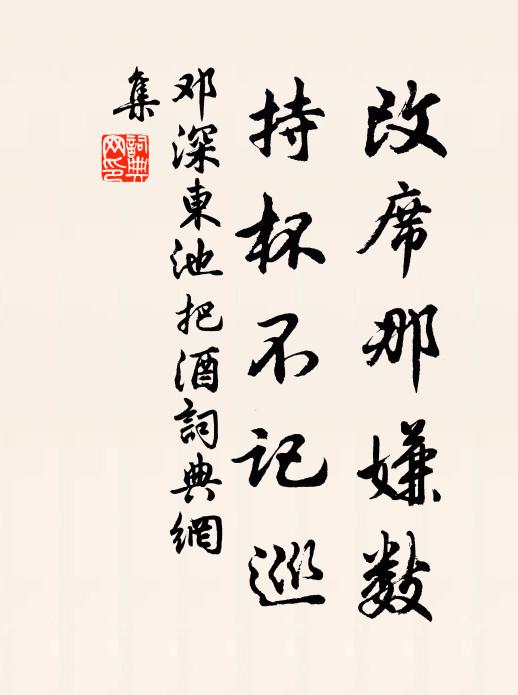 改席那嫌数
持杯不记巡
邓深东池把酒詞典網
集
詞典
网印